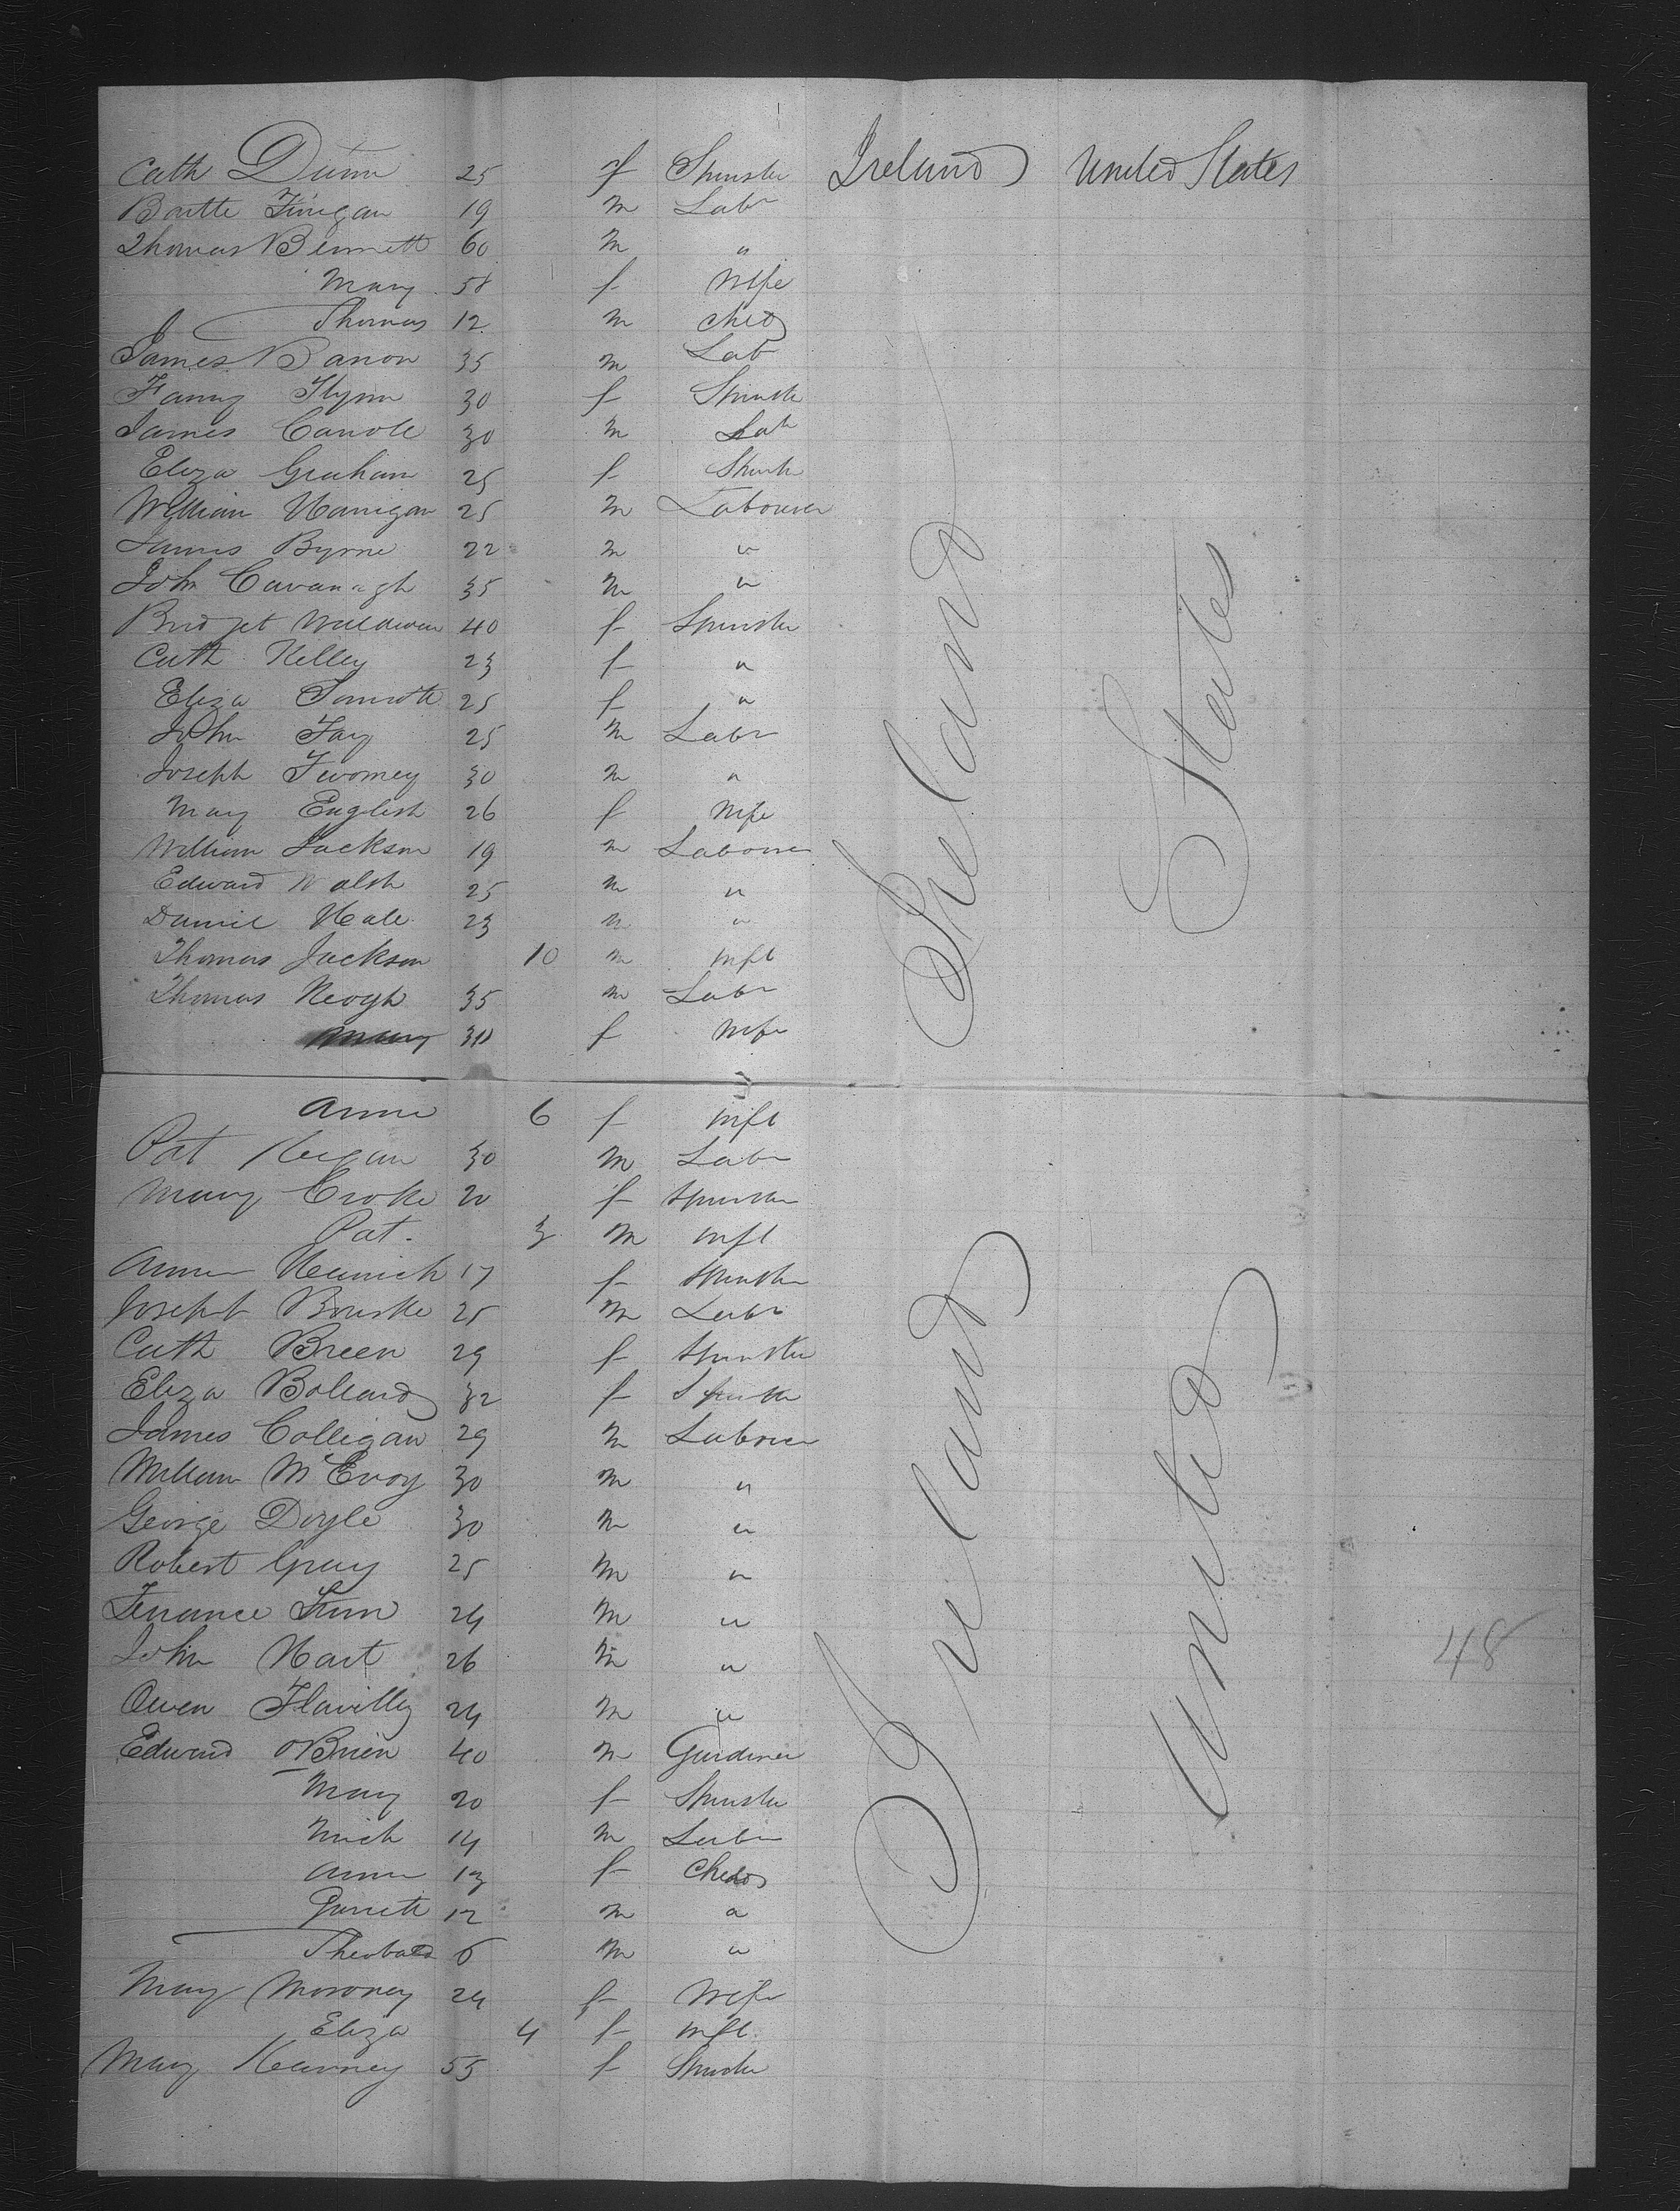 Cath Dunn 25 f Spinster Ireland United States
Bartle Finegan 19 m Labr
Thomas Bennett 60 m "
Mary 58 f Wife
Thomas 12 m Child
James Banon 35 m Lab
Fanny Flynn 30 f Spinster
James Carroll 30 m Lab
Eliza Graham 25 f Spinster
William Hanigan 25 m Labourer
James Byrne 22 m "
John Cavanagh 35 m "
Bridget 40 f Spinster
Cath Kelley 23 f "
Eliza 25 f "
John Fay 25 m Labr
Joseph Twomey 30 m "
Mary English 26 f Wife
William Jackson 19 m Labourer
Edward Walsh 25 m "
Daniel Hale 23 m "
Thomas Jackson 10 m Inft
Thomas Keogh 35 m Labr
Mary 30 f Wife
Anne 6 f Inft
Pat Keegan 30 m Labr
Mary Croke 20 f Spinster
Pat. 3 m Inft
Anne 17 f Spinster
Joseph Bourke 25 m Labr
Cath Breen 29 f Spinster
Eliza Bollard 32 f Spinster
James Colligan 29 m Labourer
William McEvoy 30 m "
George Doyle 30 m "
Robert Gray 25 m "
Terrance 24 m "
John Hart 26 m "
Owen 24 m "
Edward OBrien 40 m Gardiner
Mary 20 f Spinster
Mich 14 m Labr
Anne 13 f Child
Garrett 12 m "
Theobald 6 m "
Mary Moroney 24 f Wife
Eliza 4 f Inft
Mary Kearney 55 f Spinster
Ireland
Ireland
United States
48